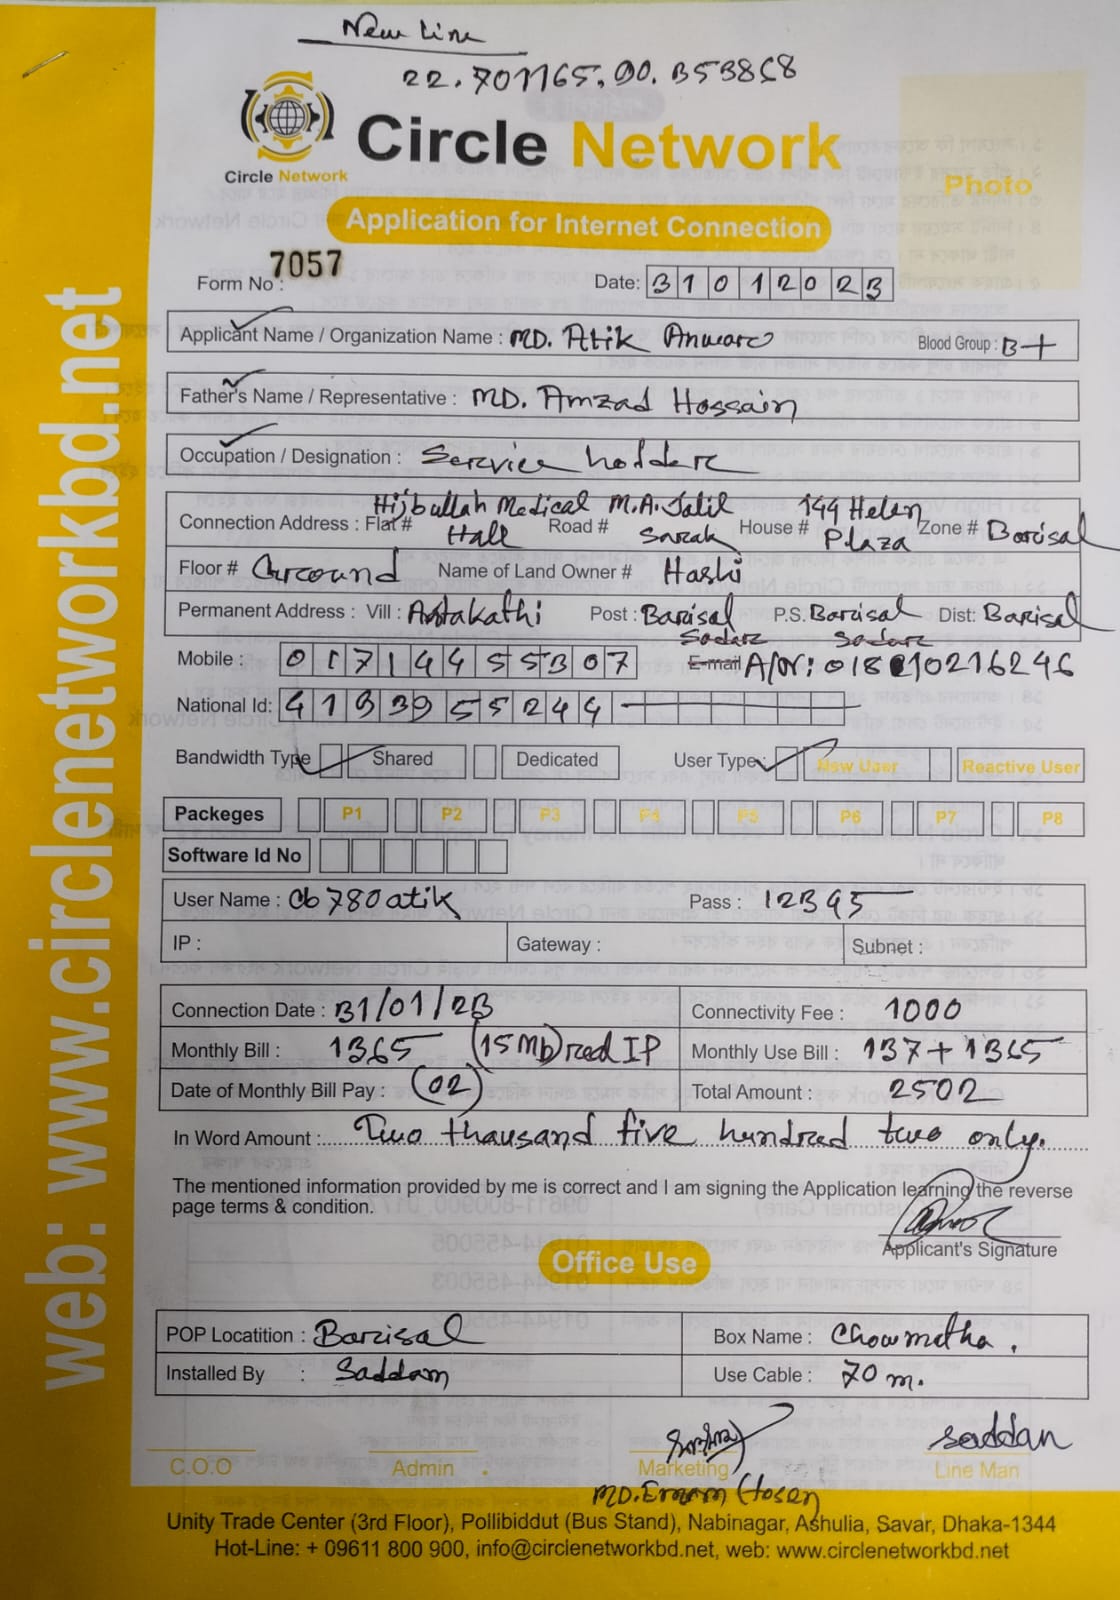 New Line
22.701165,90.353868
Circle Network
Circle Network
Photo
Application for Internet Connection
Form No : 7057
Date: 31012023
Applicant Name / Organization Name : MD. Atik Anwar Blood Group : B+
Father's Name / Representative : MD. Amzad Hossain
Occupation / Designation : Service holder
Connection Address : Flat # Hijbullah Medical Hall Road # M.A. Jalil Sarak House # 144 Helen Plaza Zone # Barisal
Floor # Ground Name of Land Owner # Hashi
Permanent Address : Vill : Post : Barisal Sadar P.S. Barisal Sadar Dist: Barisal
Mobile : 01714455307 E-mail A/Nr: 01810216246
National Id: 4193955244
Bandwidth Type Shared Dedicated User Type: New User Reactive User
Packeges P1 P2 P3 P4 P5 P6 P7 P8
Software Id No
User Name : cb780atik Pass : 12345
IP : Gateway : Subnet :
Connection Date : 31/01/23 Connectivity Fee : 1000
Monthly Bill : 1365 (15 Mb) IP Monthly Use Bill : 137 + 1365
Date of Monthly Bill Pay : (02) Total Amount : 2502
In Word Amount : Two thausand five hundred two only.
The mentioned information provided by me is correct and I am signing the Application learning the reverse
page terms & condition.
Applicant's Signature
Office Use
POP Locatition : Barisal Box Name : Chowmatha.
Installed By : Saddam Use Cable : 70 m.
saddam
C.O.O Admin Marketing Line Man
MD. Emam Hosen
Unity Trade Center (3rd Floor), Pollibiddut (Bus Stand), Nabinagar, Ashulia, Savar, Dhaka-1344
Hot-Line: + 09611 800 900, info@circlenetworkbd.net, web: www.circlenetworkbd.net
web: www.circlenetworkbd.net